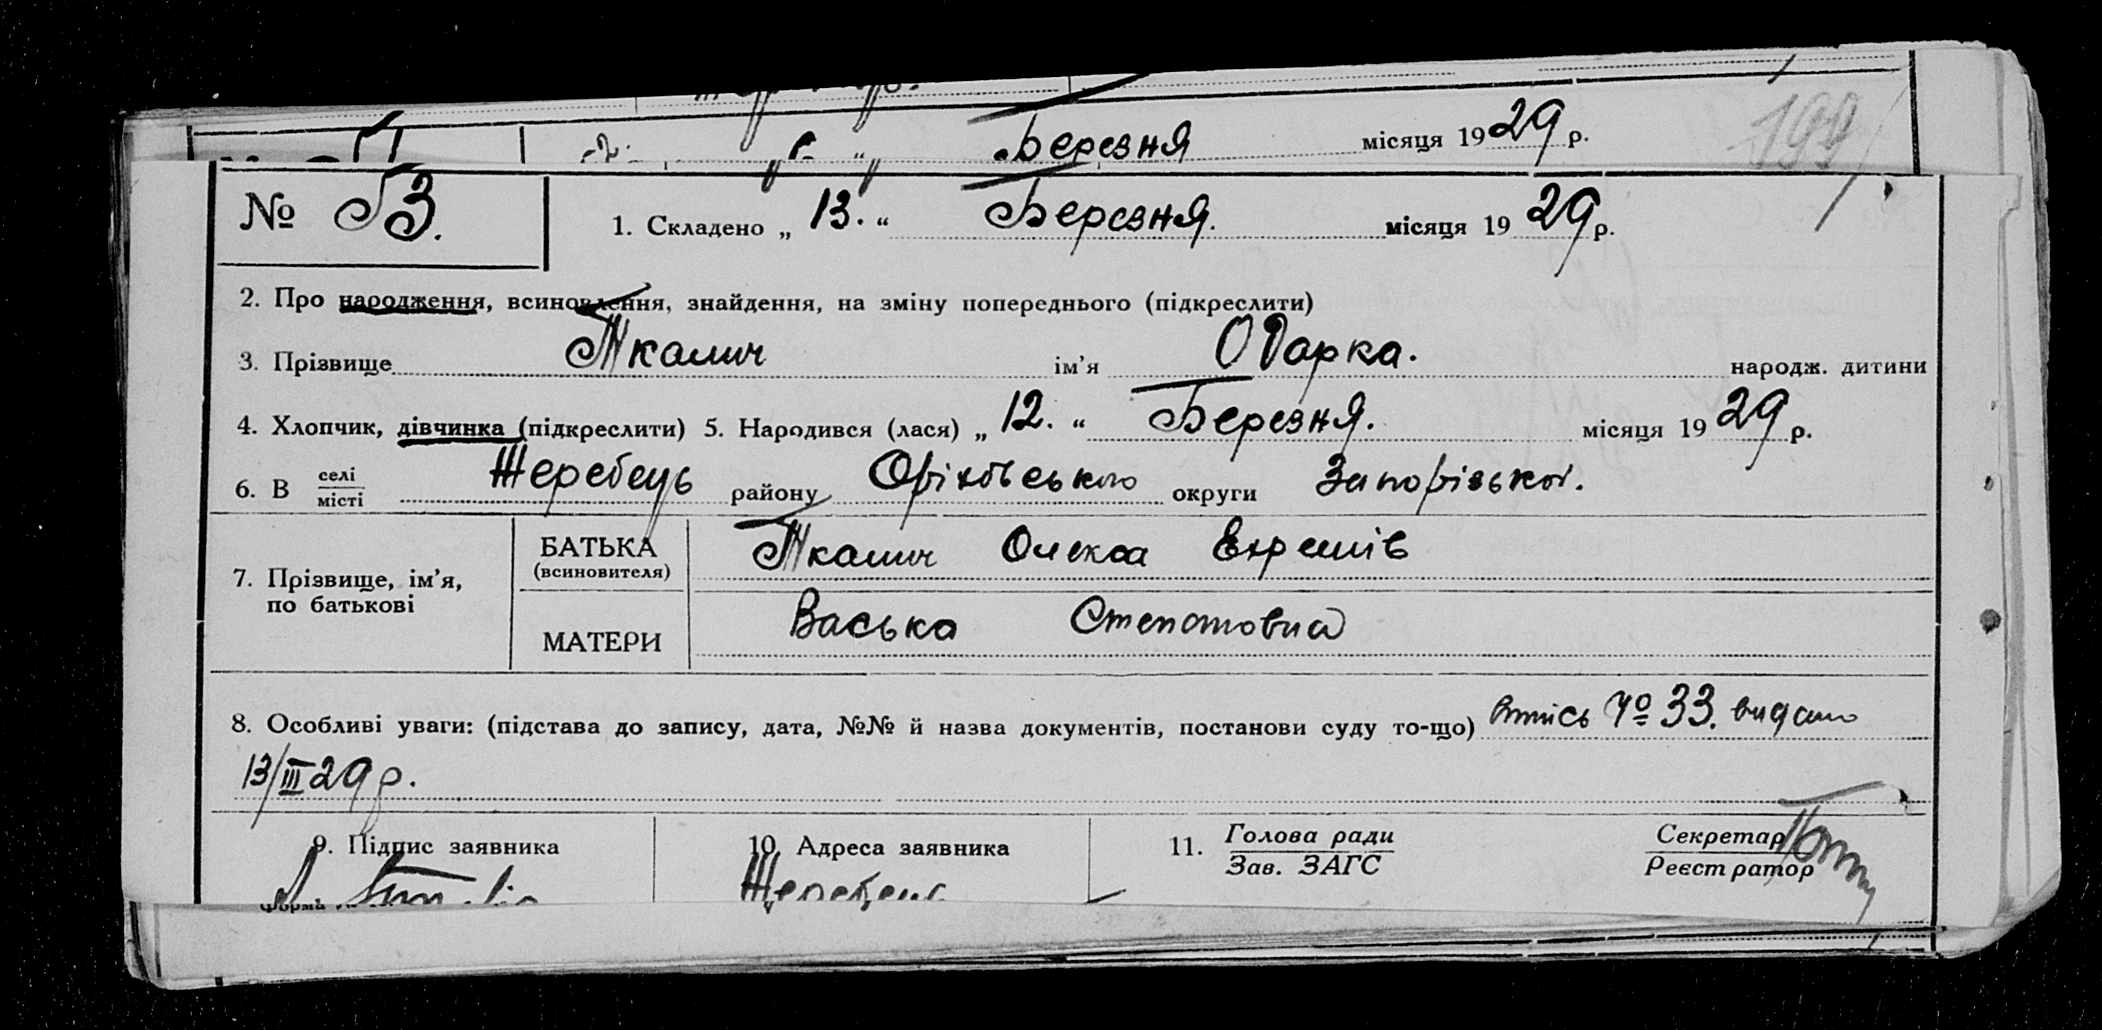 Березня місяця 1929 р. 199
№ 53. 1. Складено „ 13. “ Березня. місяця 1929 р.
2. Про народження, всиновлення, знайдення, на зміну попереднього (підкреслити)
3. Прізвище Ткалич ім’я Одарка. народж. дитини
4. Хлопчик, дівчинка (підкреслити) 5. Народився (лася) „ 12. “ Березня. місяця 1929 р.
6. В селі/місті Жеребець району Оріхівського округи Запорізької.
7. Прізвище, ім’я, по батькові
БАТЬКА (всиновителя) Ткалич Олекса Ехремів
МАТЕРИ Васька Степановна
8. Особливі уваги: (підстава до запису, дата, №№ й назва документів, постанови суду то-що) № 33. видано
13/III 29 р.
9. Підпис заявника 10. Адреса заявника 11. Голова ради Секретар
Зав. ЗАГС Реєстратор
Жеребець